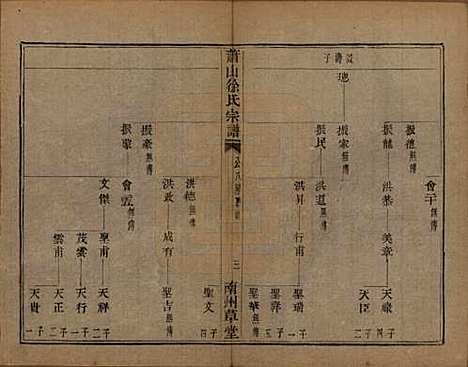 琨
振德無傳
會干無傳
振龍
洪恭
美章
天祿
子四
天臣
子二
振家無傳
振民
洪道無傳
洪昇
行甫
聖瑞
子一
聖釋
子五
聖華無傳
蕭山徐氏宗譜
三
南州草堂
洪德無傳
聖文
子四
洪政
成有
聖吉無傳
振豪無傳
振擎
會五無傳
文傑
聖甫
天祥
子二
茂雲
天行
子一
雲甫
天正
子二
天貴
子一